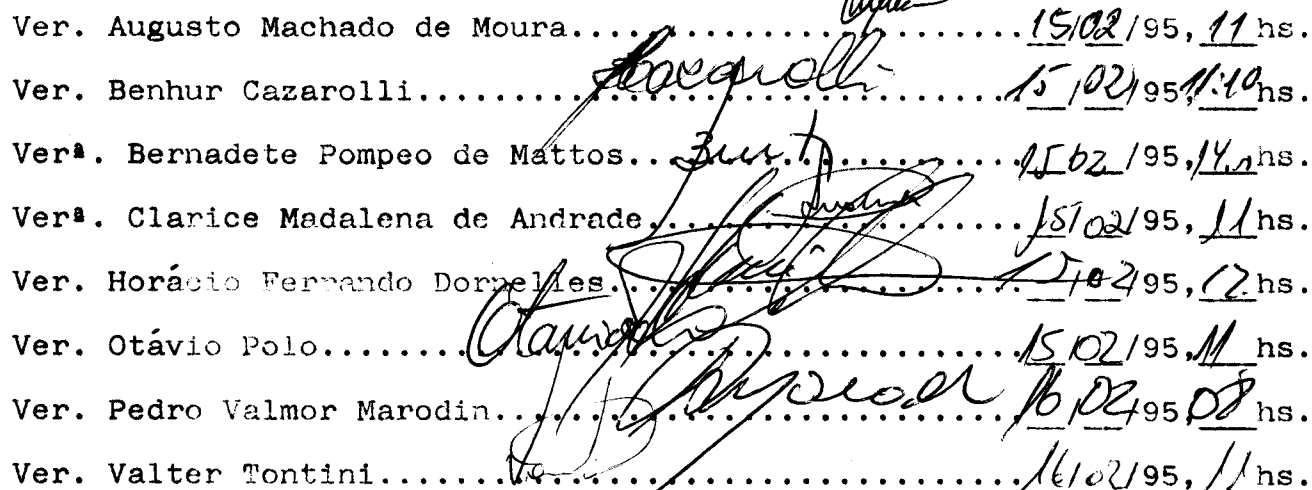 Ver. Augusto Machado de Moura............................15/02/95, 11 hs.
Ver. Benhur Cazarolli............................15/02/95 11:10 hs.
Verª. Bernadete Pompeo de Mattos............................15 02 /95, 14 hs.
Verª. Clarice Madalena de Andrade............................15/02/95, 11 hs.
Ver. Horácio Fernando Dornelles............................15/02/95, 12 hs.
Ver. Otávio Polo............................15/02/95, 11 hs.
Ver. Pedro Valmor Marodin............................16/02/95, 08 hs.
Ver. Valter Tontini............................16/02/95, 11 hs.